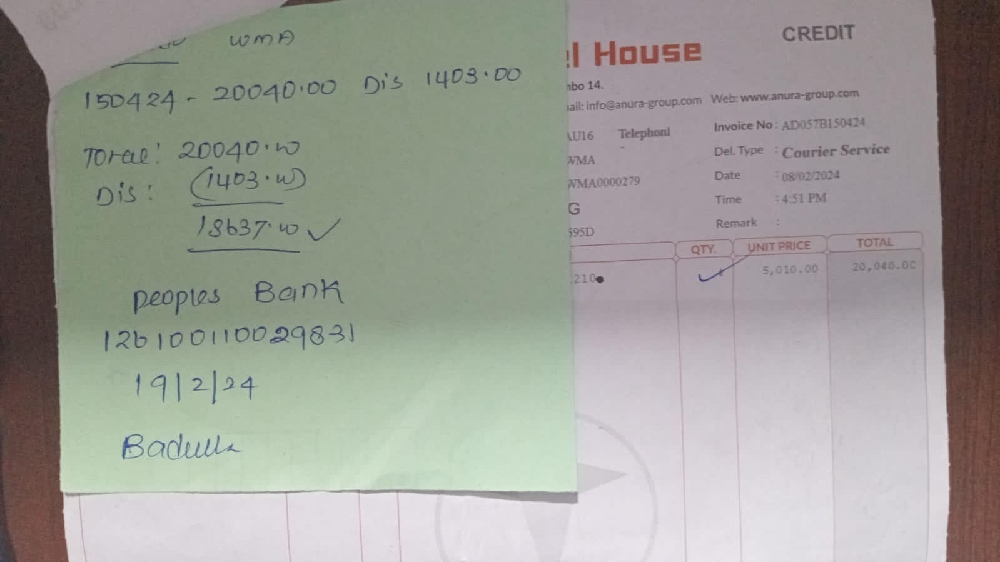 WMA
150424 - 20040.00 Dis 1403.00
Total: 20040.00
Dis: (1403.00)
18637.00
Peoples Bank
126100110029831
19/2/24
Badulla
CREDIT
House
14.
info@anura-group.com Web: www.anura-group.com
AU16 Telephoni
Invoice No : AD057B150424
WMA
Del. Type : Courier Service
WMA0000279
Date : 08/02/2024
G
Time : 4:51 PM
595D
Remark :
QTY. UNIT PRICE TOTAL
210 5,010.00 20,040.00